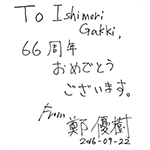 To Ishimori
Gakki,
66周年
おめでとう
ございます。
From
鄭優樹
2016-09-22